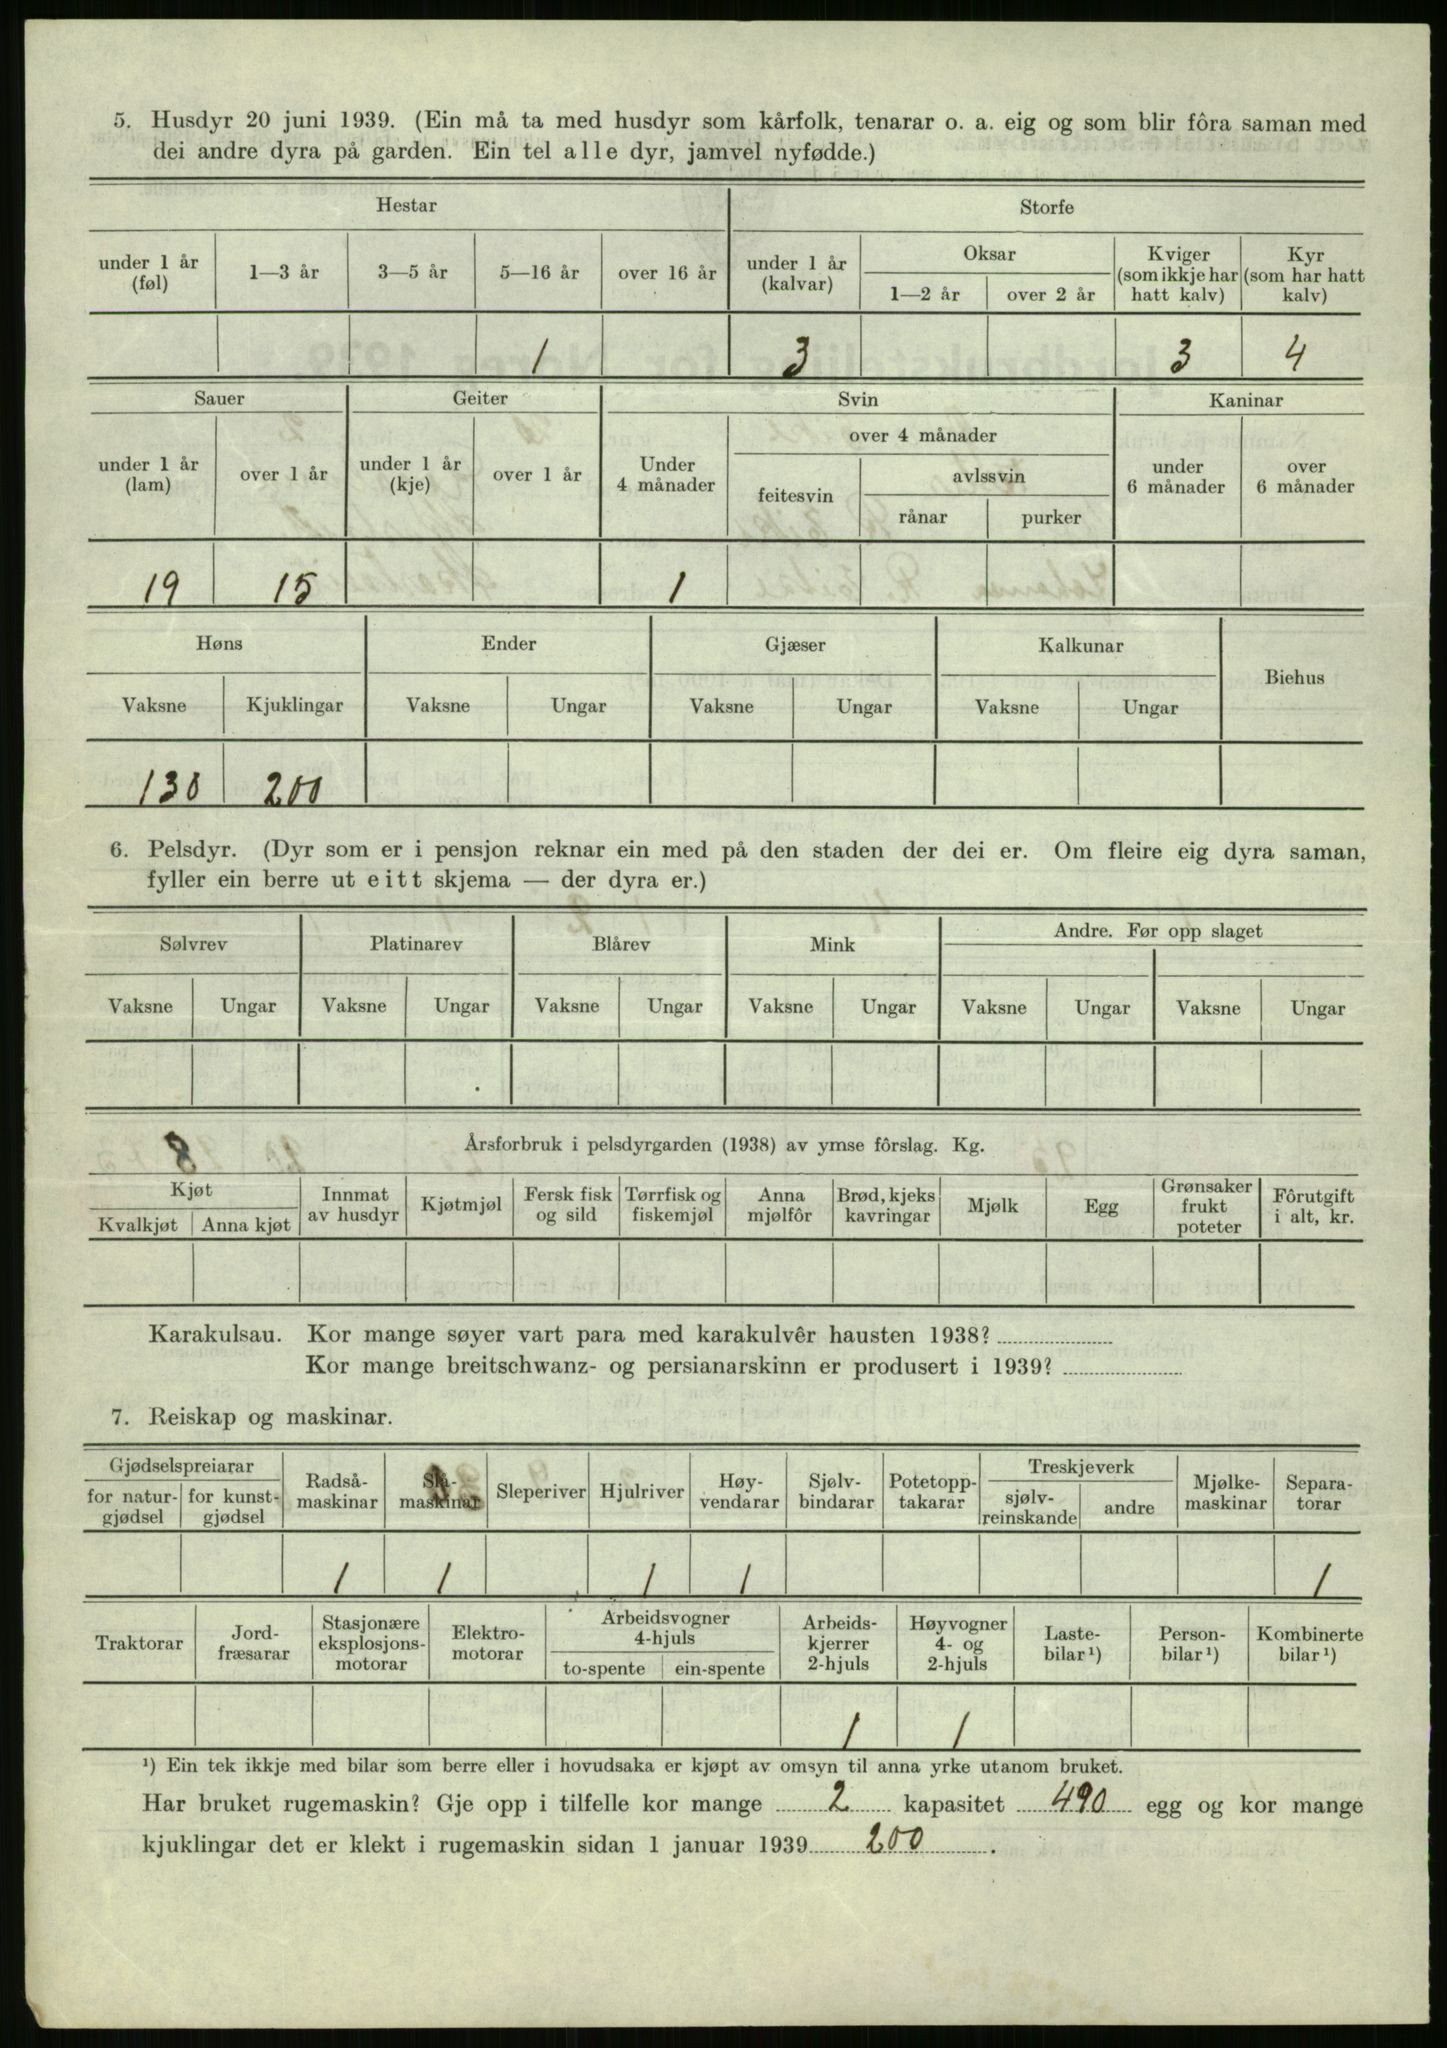 5. Husdyr 20 juni 1939. (Ein må ta med husdyr som kårfolk, tenarar o. a. eig og som blir fôra saman med
dei andre dyra på garden. Ein tel alle dyr, jamvel nyfødde.)
Hestar Storfe
under 1 år (føl) 1—3 år 3—5 år 5—16 år over 16 år under 1 år (kalvar) Oksar 1—2 år over 2 år Kviger (som ikkje har hatt kalv) Kyr (som har hatt kalv)
1 3 3 4
Sauer Geiter Svin Kaninar
under 1 år (lam) over 1 år under 1 år (kje) over 1 år Under 4 månader over 4 månader feitesvin avlssvin rånar purker under 6 månader over 6 månader
19 15 1
Høns Ender Gjæser Kalkunar Biehus
Vaksne Kjuklingar Vaksne Ungar Vaksne Ungar Vaksne Ungar
130 200
6. Pelsdyr. (Dyr som er i pensjon reknar ein med på den staden der dei er. Om fleire eig dyra saman,
fyller ein berre ut eitt skjema — der dyra er.)
Sølvrev Platinarev Blårev Mink Andre. Før opp slaget
Vaksne Ungar Vaksne Ungar Vaksne Ungar Vaksne Ungar Vaksne Ungar Vaksne Ungar
Årsforbruk i pelsdyrgarden (1938) av ymse fôrslag. Kg.
Kjøt Kvalkjøt Anna kjøt Innmat av husdyr Kjøtmjøl Fersk fisk og sild Tørrfisk og fiskemjøl Anna mjølfôr Brød, kjeks kavringar Mjølk Egg Grønsaker frukt poteter Fôrutgift i alt, kr.
Karakulsau. Kor mange søyer vart para med karakulvêr hausten 1938?
Kor mange breitschwanz- og persianarskinn er produsert i 1939?
7. Reiskap og maskinar.
Gjødselspreiarar for natur-gjødsel for kunst-gjødsel Radså-maskinar Slå-maskinar Sleperiver Hjulriver Høy-vendarar Sjølv-bindarar Potetopp-takarar Treskjeverk sjølv-reinskande andre Mjølke-maskinar Separa-torar
1 1 1 1 1
Traktorar Jord-fræsarar Stasjonære eksplosjons-motorar Elektro-motorar Arbeidsvogner 4-hjuls to-spente ein-spente Arbeids-kjerrer 2-hjuls Høyvogner 4- og 2-hjuls Laste-bilar ¹) Person-bilar ¹) Kombinerte bilar ¹)
1 1
¹) Ein tek ikkje med bilar som berre eller i hovudsaka er kjøpt av omsyn til anna yrke utanom bruket.
Har bruket rugemaskin? Gje opp i tilfelle kor mange 2 kapasitet 490 egg og kor mange
kjuklingar det er klekt i rugemaskin sidan 1 januar 1939 200.